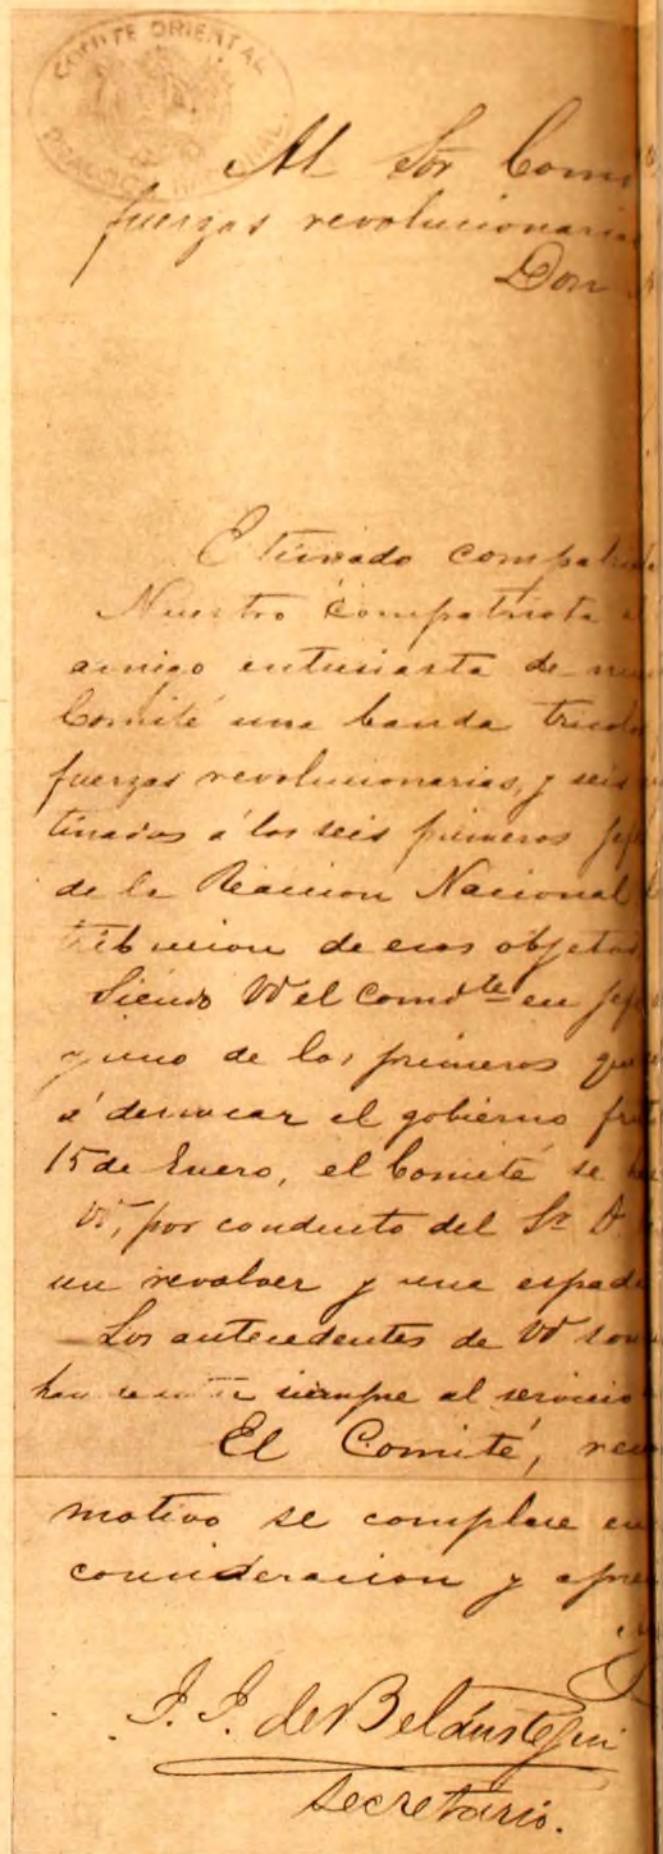 COMITE ORIENTAL
REACCION NACIONAL
Al Sór Com
fuerzas revolucionarias
Don
Etimado compatriota
Nuestro compatriota
amigo entusiasta de
Comité una banda tricolo
fuerzas revolucionarias, y seis
tinados á los seis primeros jefe
de la Reaccion Nacional
tribucion de esos objetos
Siendo Vd el comdte en jefe
y uno de los primeros que
á derrocar el gobierno
15 de Enero, el Comité se
Vd, por conducto del Sr D.
un revolver y una espada
Los antecedentes de Vd son
han siempre al servicio
El Comité, rec
motivo se complace en
consideracion y apre
J. J. de Beláustegui
Secretario.